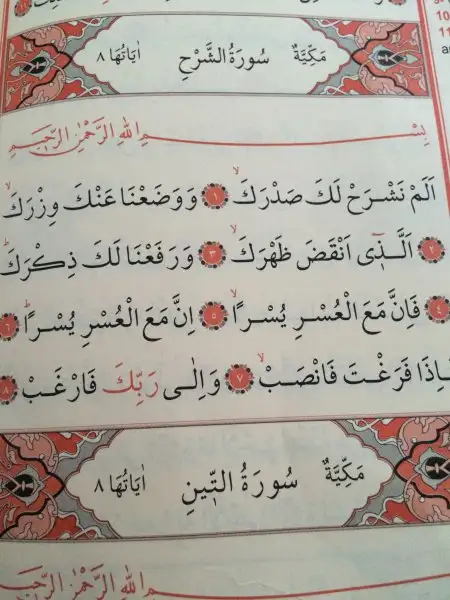 سُورَةُ الشَّرْحِ مَكِّيَّةٌ اٰيَاتُهَا ٨
بِسْمِ اللّٰهِ الرَّحْمٰنِ الرَّح۪يمِ
اَلَمْ نَشْرَحْ لَكَ صَدْرَكَۙ ١ وَوَضَعْنَا عَنْكَ وِزْرَكَۙ
٢ اَلَّذ۪ٓي اَنْقَضَ ظَهْرَكَۙ ٣ وَرَفَعْنَا لَكَ ذِكْرَكَۜ
٤ فَاِنَّ مَعَ الْعُسْرِ يُسْراًۙ ٥ اِنَّ مَعَ الْعُسْرِ يُسْراًۜ ٦
فَاِذَا فَرَغْتَ فَانْصَبْۙ ٧ وَاِلٰى رَبِّكَ فَارْغَبْ ٨
سُورَةُ التّ۪ينِ مَكِّيَّةٌ اٰيَاتُهَا ٨
بِسْمِ اللّٰهِ الرَّحْمٰنِ الرَّح۪يمِ